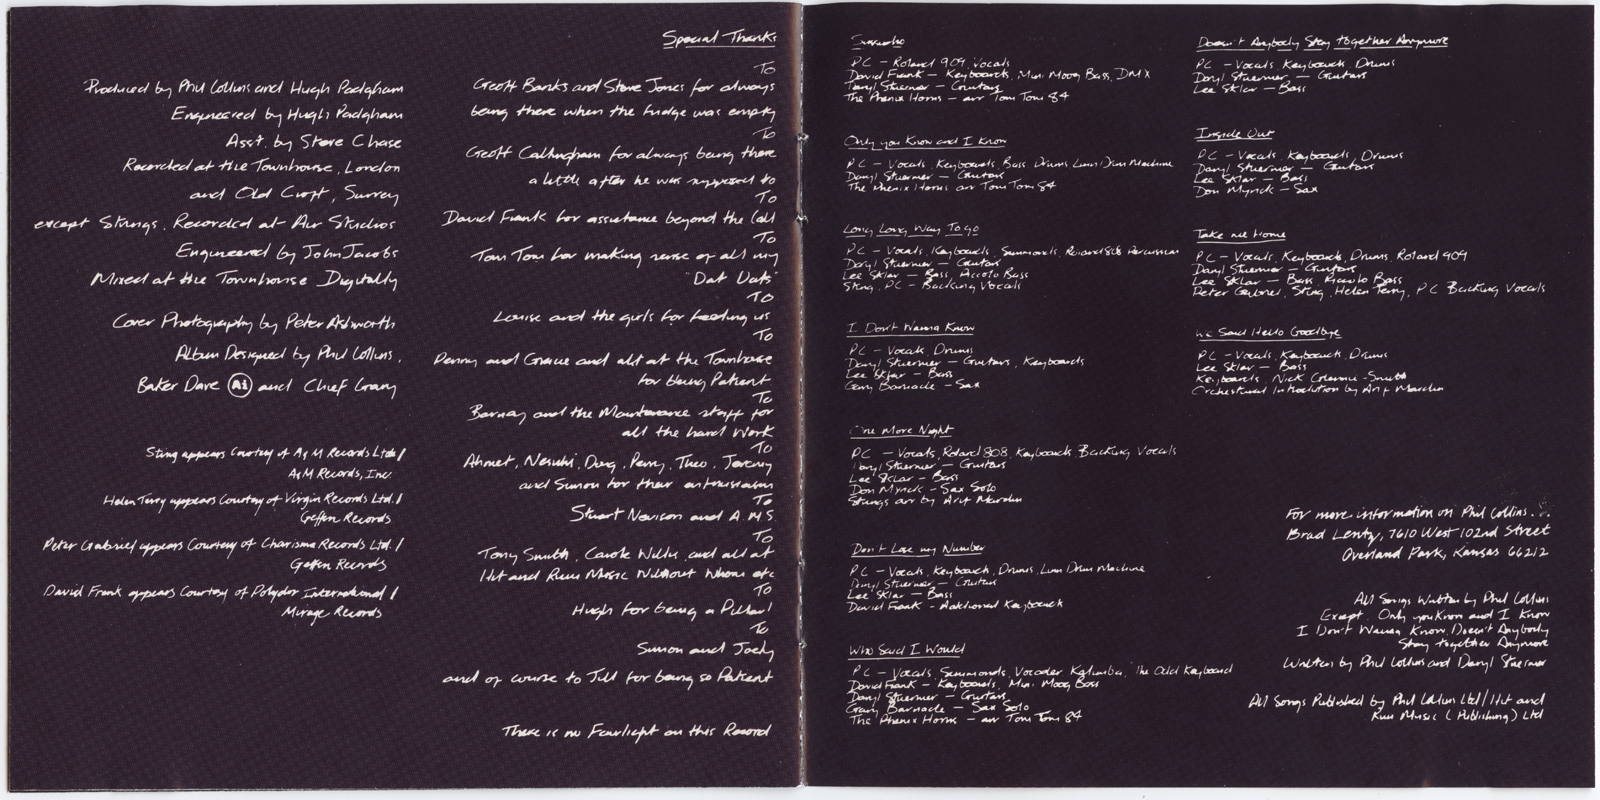 Produced by Phil Collins and Hugh Padgham
Engineered by Hugh Padgham
Asst. by Steve Chase
Recorded at the Townhouse, London
and Old Croft, Surrey
except Strings, Recorded at Air Studios
Engineered by John Jacobs
Mixed at the Townhouse Digitally
Cover Photography by Peter Ashworth
Album Designed by Phil Collins,
Baker Dave Ai and Chief Grany
Sting appears Courtesy of A&M Records Ltd/
A&M Records, Inc.
Helen Terry appears Courtesy of Virgin Records Ltd./
Geffen Records
Peter Gabriel appears Courtesy of Charisma Records Ltd./
Geffen Records
David Frank appears Courtesy of Polydor International/
Mirage Records
Special Thanks
To
Geoff Banks and Steve Jones for always
being there when the fridge was empty
To
Geoff Callingham for always being there
a little after he was supposed to
To
David Frank for assistance beyond the Call
To
Tom Tom for making sense of all my
"Dat Dats"
To
Louise and the girls for feeding us
To
Penny and Gracie and all at the Townhouse
for being Patient
To
Barney and the Maintenance staff for
all the hard Work
To
Ahmet, Nesuhi, Doug, Perry, Theo, Jeremy
and Simon for their enthusiasm
To
Stuart Nevison and A.M.S
To
Tony Smith, Carole Willis, and all at
Hit and Run Music Without Whom etc
To
Hugh for being a Pillar!
To
Simon and Joely
and of course to Jill for being so Patient
There is no Fairlight on this Record
Sussudio
PC - Roland 909, Vocals
David Frank - Keyboards, Mini Moog Bass, DMX
Daryl Stuermer - Guitars
The Phenix Horns - arr Tom Tom 84
Only you Know and I Know
PC - Vocals, Keyboards Bass, Drums, Linn Drum Machine
Daryl Stuermer - Guitars
The Phenix Horns arr Tom Tom 84
Long Long Way To go
PC - Vocals, Keyboards, Simmonds, Roland 808 Percussion
Daryl Stuermer - Guitars
Lee Sklar - Bass, Accolo Bass
Sting, PC - Backing Vocals
I Don't Wanna Know
PC - Vocals, Drums
Daryl Stuermer - Guitars, Keyboards
Lee Sklar - Bass
Gary Barnacle - Sax
One More Night
PC - Vocals, Roland 808, Keyboards Backing Vocals
Daryl Stuermer - Guitars
Lee Sklar - Bass
Don Myrick - Sax Solo
Strings arr by Arif Mardin
Don't Lose my Number
PC - Vocals, Keyboards, Drums, Linn Drum Machine
Daryl Stuermer - Guitars
Lee Sklar - Bass
David Frank - Additional Keyboards
Who Said I Would
PC - Vocals, Simmonds, Vocoder Kalimba, The Odd Keyboard
David Frank - Keyboards, Mini Moog Bass
Daryl Stuermer - Guitars
Gary Barnacle - Sax Solo
The Phenix Horns - arr Tom Tom 84
Doesn't Anybody Stay together Anymore
PC - Vocals, Keyboards, Drums
Daryl Stuermer - Guitars
Lee Sklar - Bass
Inside Out
PC - Vocals, Keyboards, Drums
Daryl Stuermer - Guitars
Lee Sklar - Bass
Don Myrick - Sax
Take me Home
PC - Vocals, Keyboards, Drums, Roland 909
Daryl Stuermer - Guitars
Lee Sklar - Bass, Piccolo Bass
Peter Gabriel, Sting, Helen Terry, PC Backing Vocals
We Said Hello Goodbye
PC - Vocals, Keyboards, Drums
Lee Sklar - Bass
Keyboards, Nick Glennie-Smith
Orchestural Introduction by Arif Mardin
For more information on Phil Collins...
Brad Lentz, 7610 West 102nd Street
Overland Park, Kansas 66212
All Songs Written by Phil Collins
Except, Only you Know and I Know
I Don't Wanna Know, Doesn't Anybody
Stay together Anymore
Written by Phil Collins and Daryl Stuermer
All Songs Published by Phil Collins Ltd/Hit and
Run Music (Publishing) Ltd